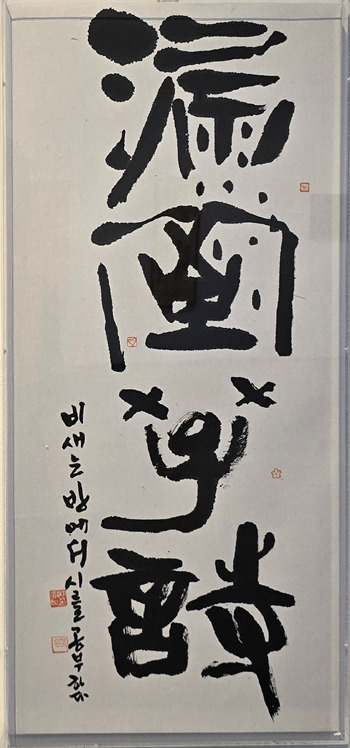 漏室學詩
비새는 방에서 시를 공부하다